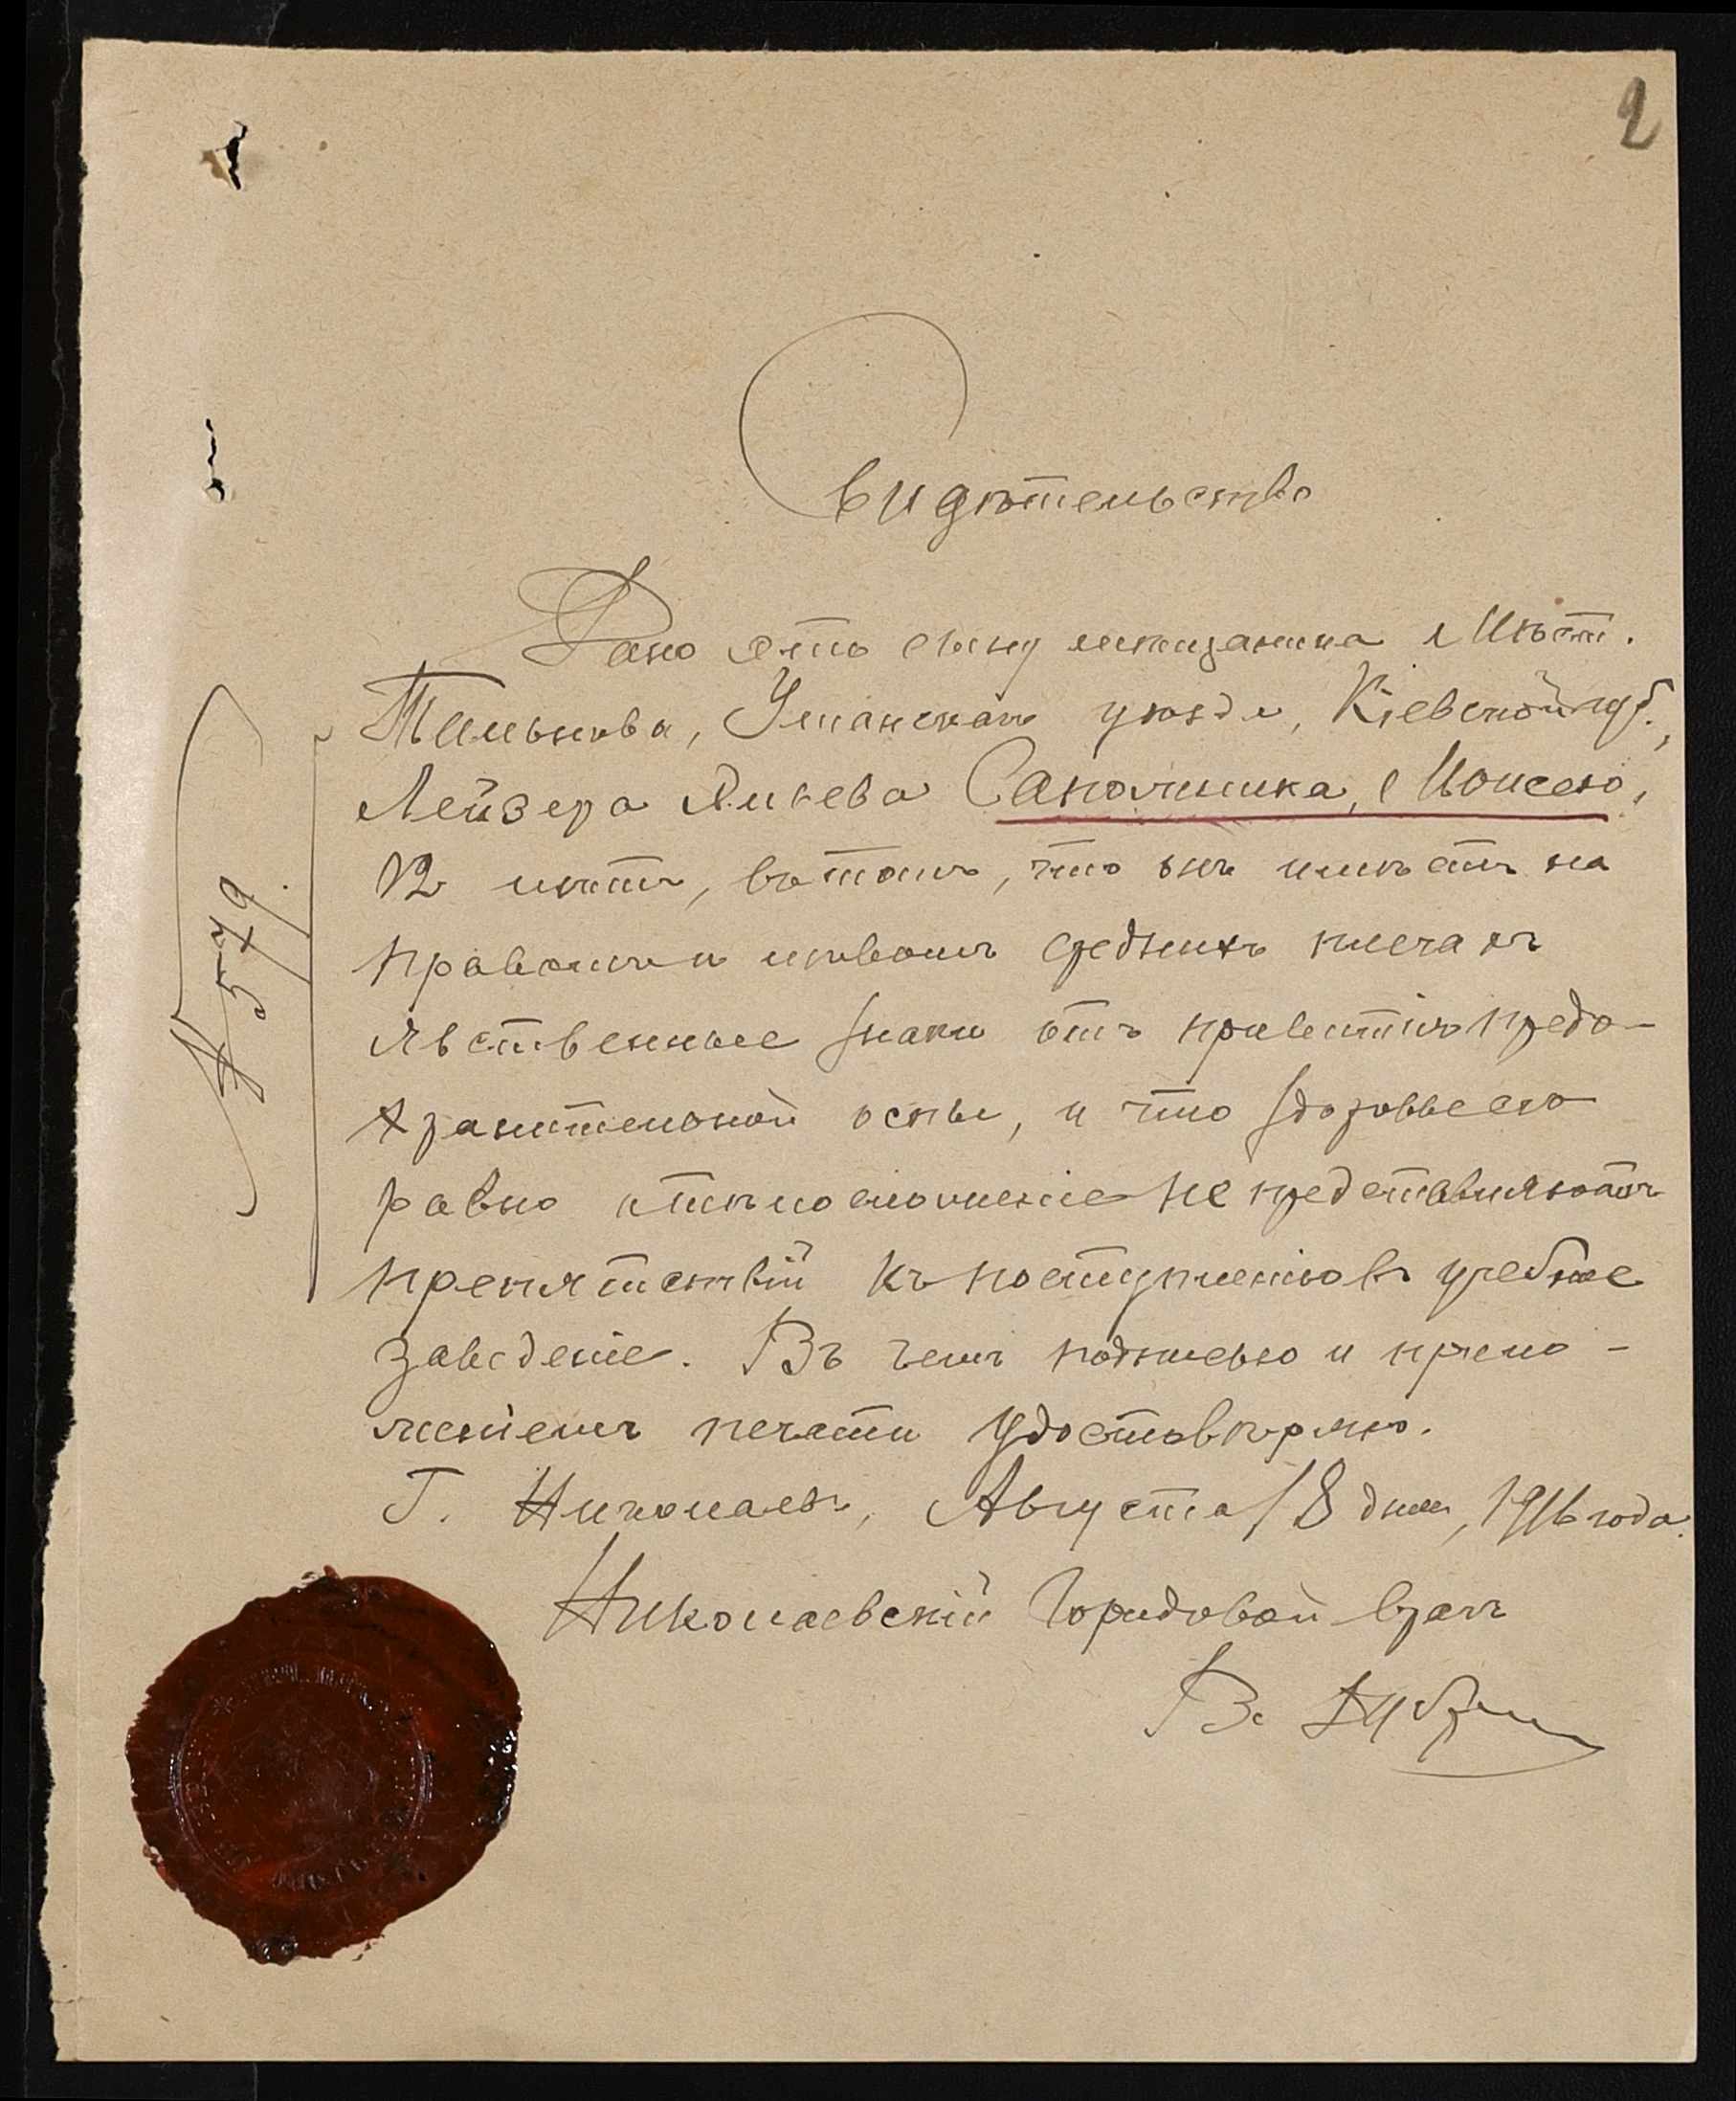 2
Свидѣтельство
Дано это сыну мѣщанина Мѣст.
Тального, Уманскаго уѣзда, Кіевской губ.,
Лейзера Янкева Сапожника, Моисею,
12 лѣтъ, въ томъ, что онъ имѣетъ на
правомъ и лѣвомъ среднихъ плечахъ
явственные знаки отъ привитія предо-
хранительной оспы, и что здоровье его
равно тѣлосложеніе не представляютъ
препятствій къ поступленію въ учебное
заведеніе. Въ чемъ подписью и прило-
женіемъ печати удостовѣряю.
Г. Николаевъ, Августа 18 дня, 1916 года.
Николаевскій Городовой врачъ
В.
№ 579.